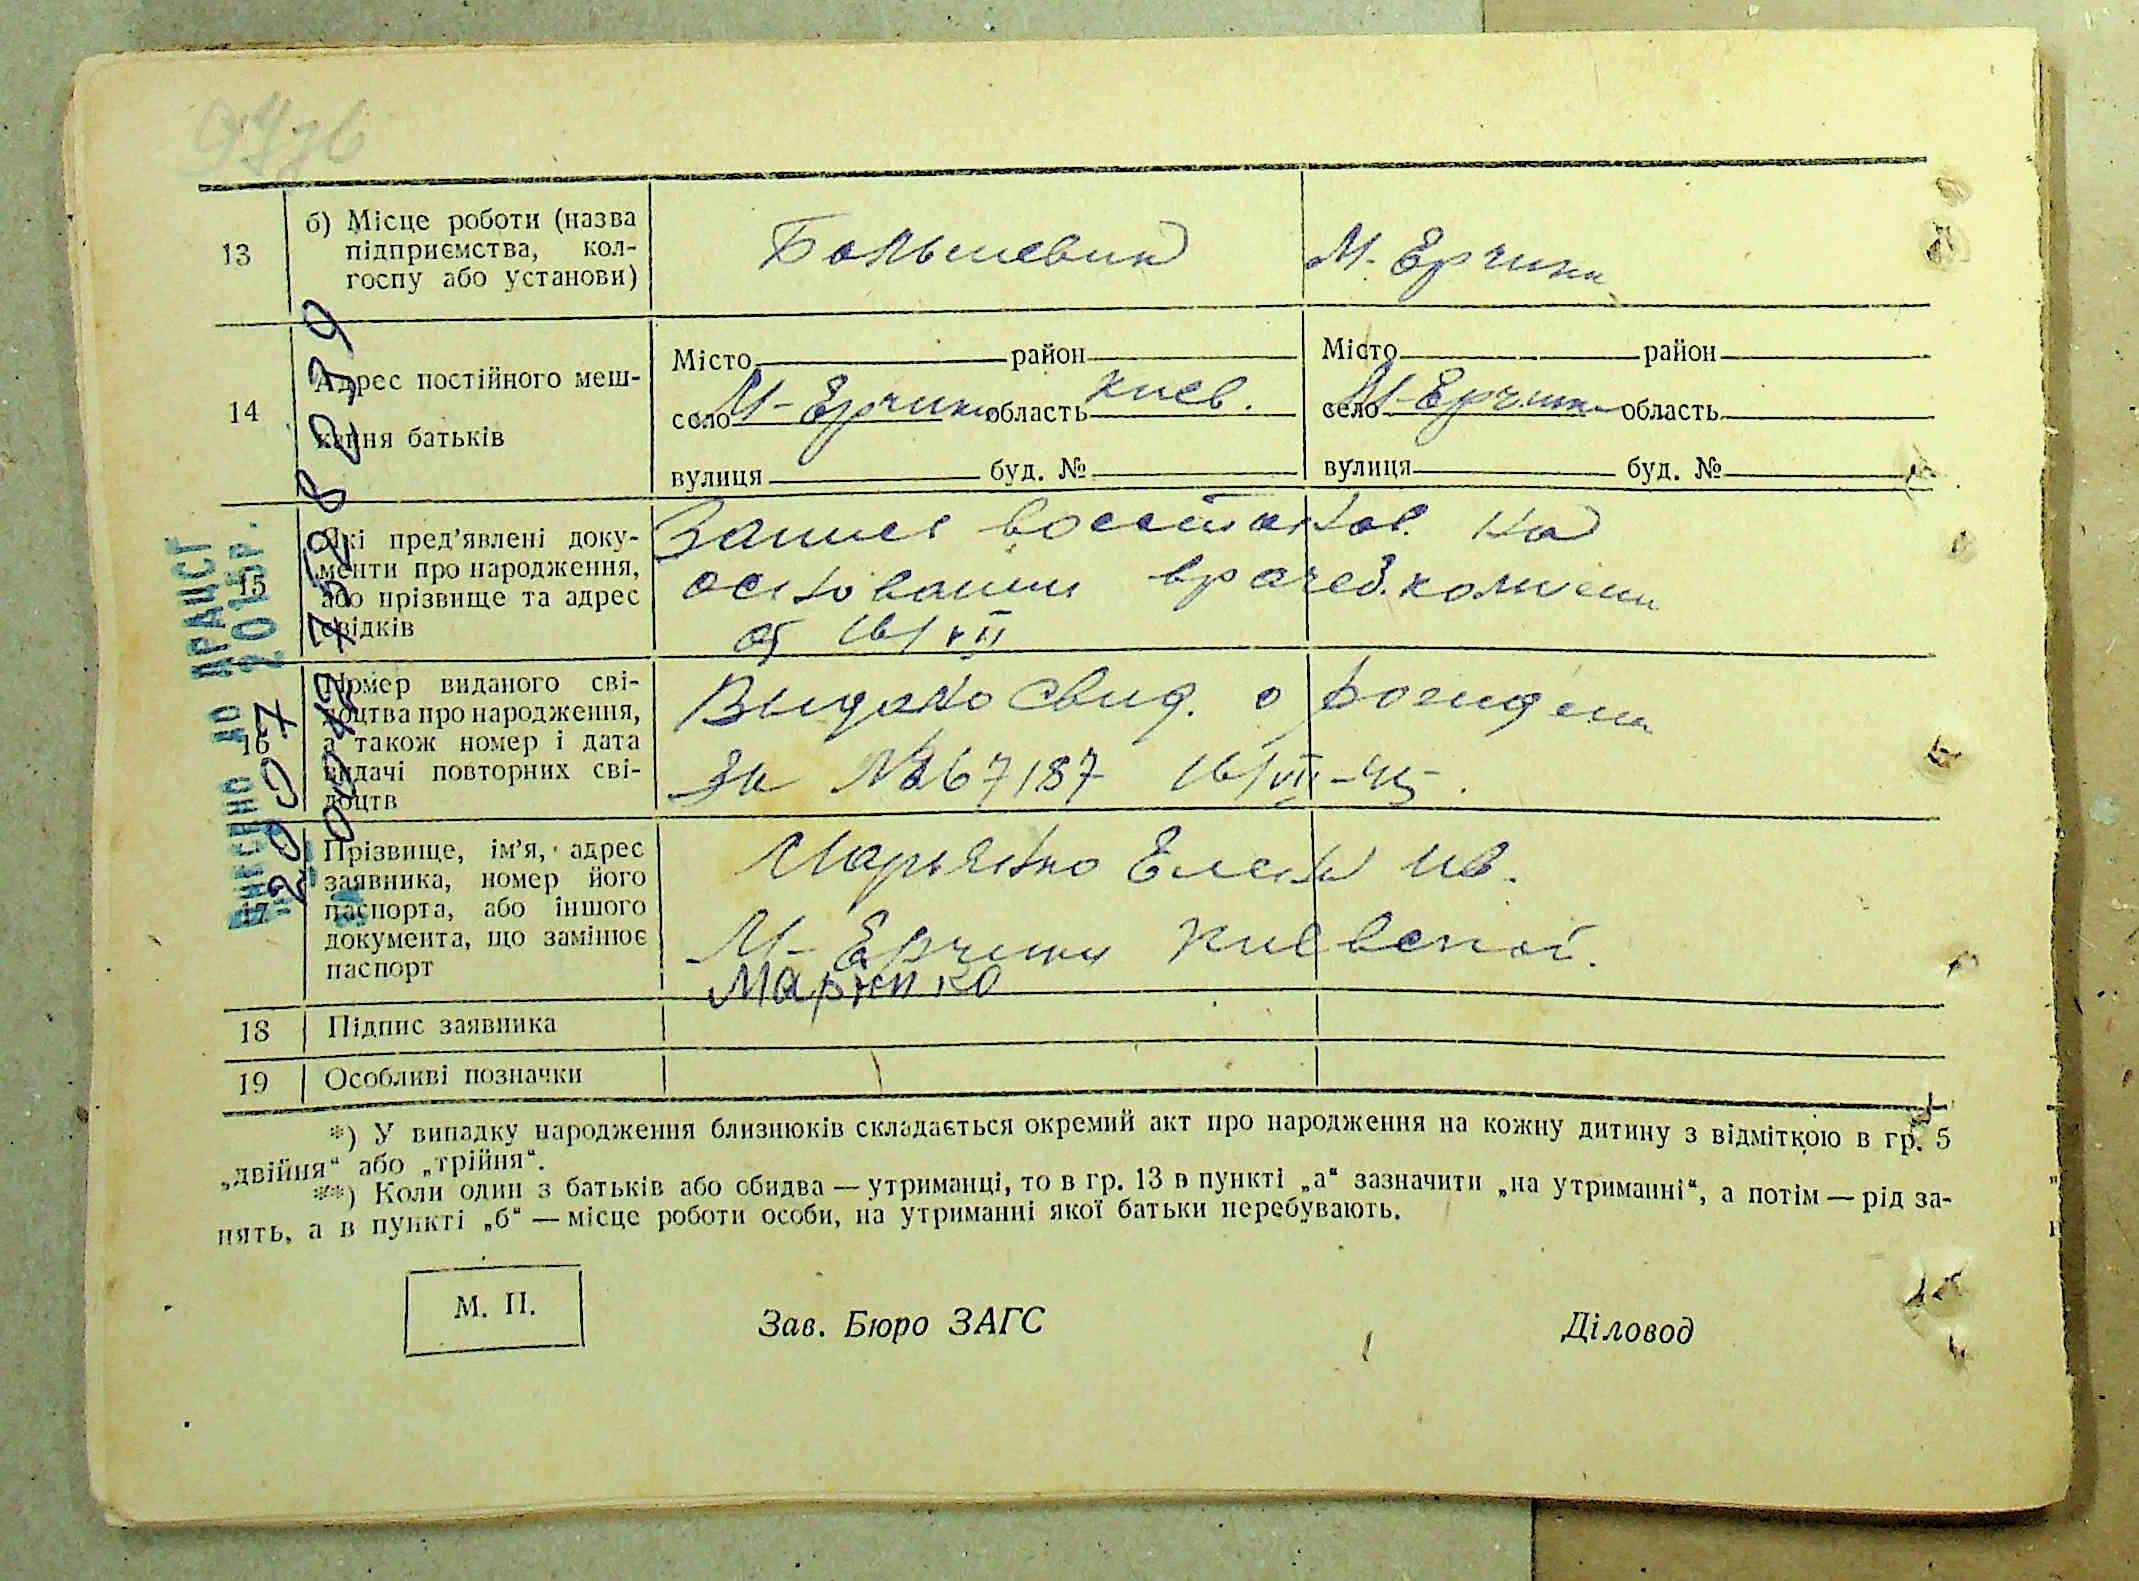 13
б) Місце роботи (назва
підприємства, кол-
госпу або установи)
Большевик
М-Ерчики
14
Адрес постійного меш-
кання батьків
Місто район
село М-Ерчики область Киев.
вулиця буд. №
Місто район
село М-Ерчики область
вулиця буд. №
15
Які пред’явлені доку-
менти про народження,
або прізвище та адрес
свідків
Запись восстанов. на
основании врачеб. комиссии
от 16/VII
16
Номер виданого сві-
доцтва про народження,
а також номер і дата
видачі повторних сві-
доцтв
Выдано свид. о рожден
за № 67187 16/VII-45.
17
Прізвище, ім’я, адрес
заявника, номер його
паспорта, або іншого
документа, що замінює
паспорт
Марченко Елена Ив.
М-Ерчики Киевской.
18
Підпис заявника
19
Особливі позначки
ВНЕСЕНО ДО ДРАЦСГ
2007
2015р.
*) У випадку народження близнюків складається окремий акт про народження на кожну дитину з відміткою в гр. 5
„двійня“ або „трійня“.
**) Коли один з батьків або обидва — утриманці, то в гр. 13 в пункті „а“ зазначити „на утриманні“, а потім — рід за-
нять, а в пункті „б“ — місце роботи особи, на утриманні якої батьки перебувають.
М. П.
Зав. Бюро ЗАГС
Діловод